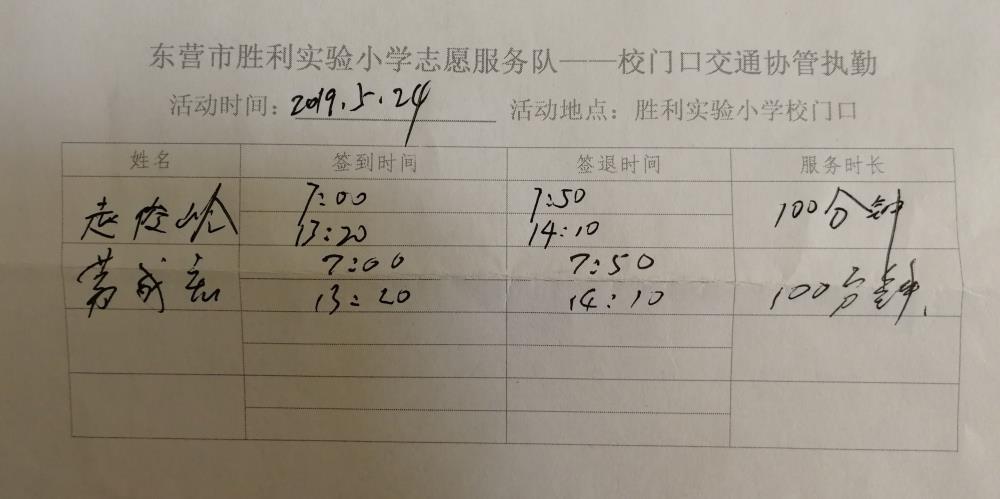 东营市胜利实验小学志愿服务队——校门口交通协管执勤
活动时间：2019.5.24 活动地点：胜利实验小学校门口
姓名 签到时间 签退时间 服务时长
7:00 7:50 100分钟
13:20 14:10
7:00 7:50
13:20 14:10 100分钟